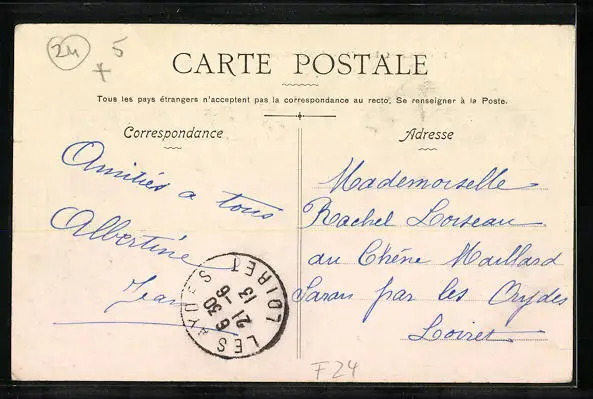 24 5
+
CARTE POSTALE
Tous les pays étrangers n'acceptent pas la correspondance au recto. Se renseigner à la Poste.
Correspondance
Amitiés a tous
Albertine
Jean
Adresse
Mademoiselle
Rachel Loiseau
au Chêne Maillard
Saran par les Aydes
Loiret
LES AYDES
LOIRET
6 30
21 -6
13
F24